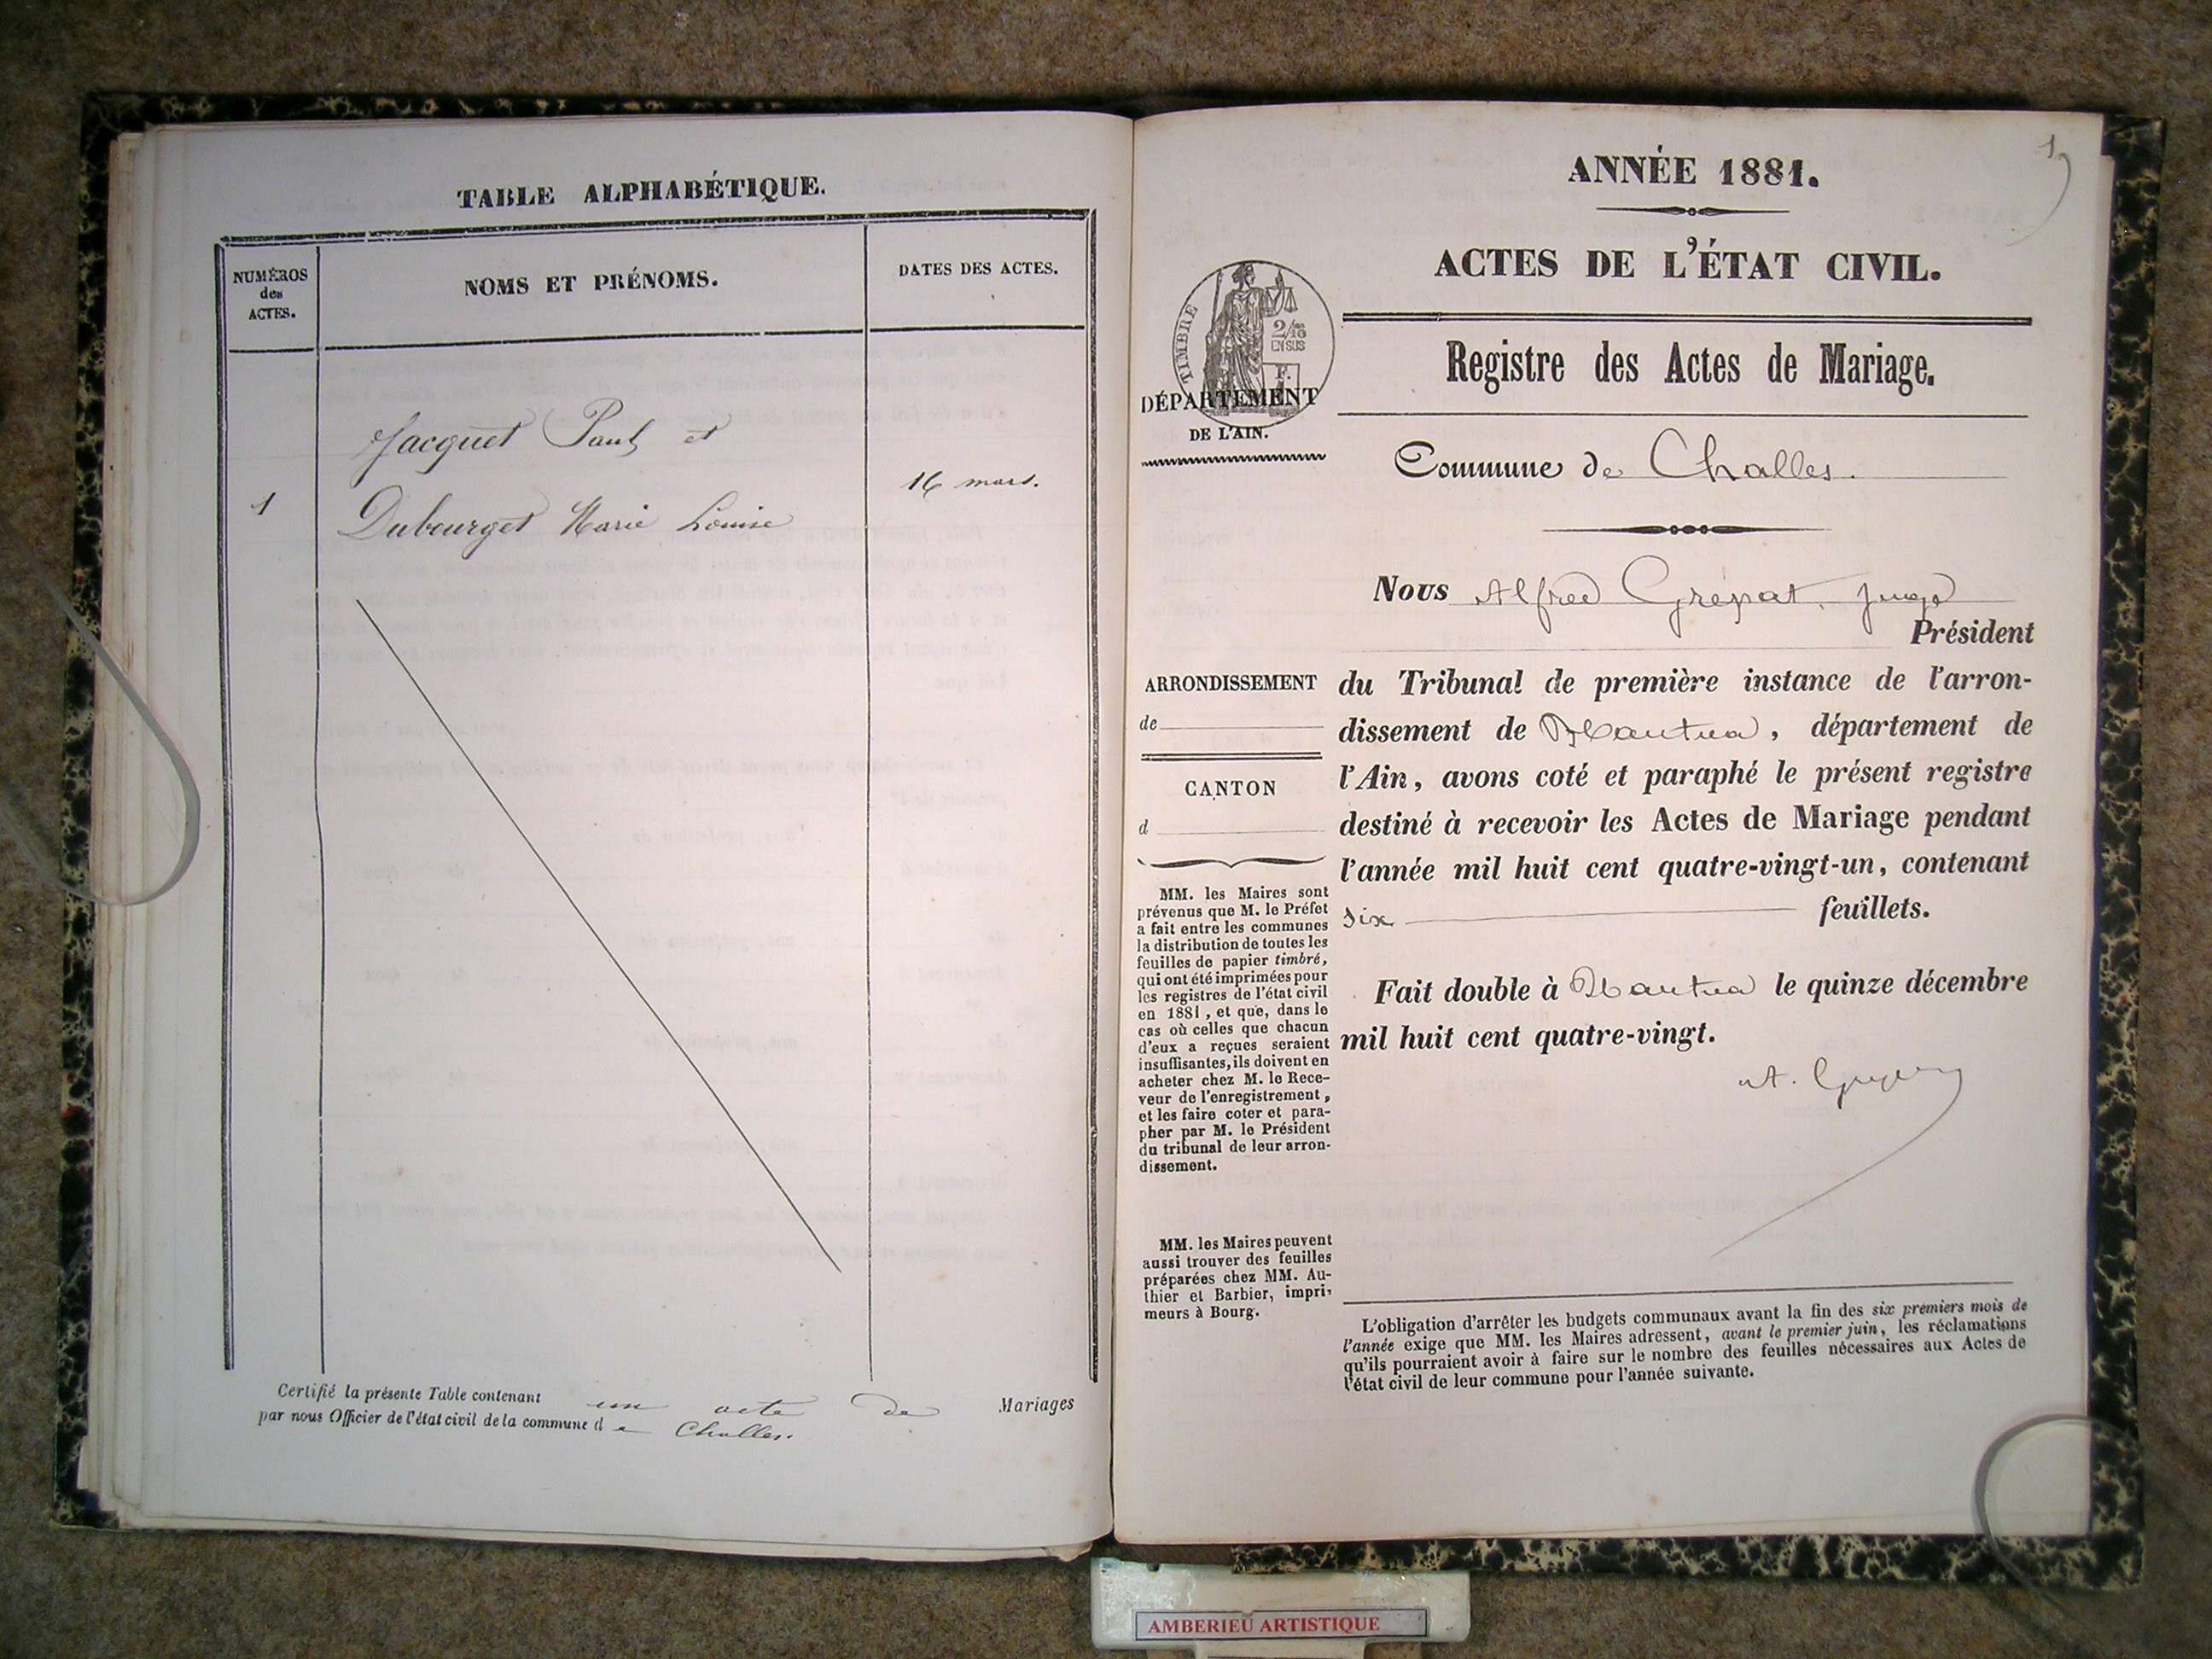 TABLE ALPHABÉTIQUE.
NUMÉROS
des
ACTES.
NOMS ET PRÉNOMS.
DATES DES ACTES.
Jacquet Paul et
1
16 mars.
Dubourget Marie Louise
Certifié la présente Table contenant un acte de Mariages
par nous Officier de l'état civil de la commune de Challes.
1
ANNÉE 1881.
ACTES DE L'ÉTAT CIVIL.
TIMBRE
2/10
EN SUS
DÉPARTEMENT
DE L'AIN.
Registre des Actes de Mariage.
Commune de Challes.
Nous Alfred Grépat, juge
Président
ARRONDISSEMENT
de
CANTON
d
du Tribunal de première instance de l'arron-
dissement de Nantua, département de
l'Ain, avons coté et paraphé le présent registre
destiné à recevoir les Actes de Mariage pendant
l'année mil huit cent quatre-vingt-un, contenant
six feuillets.
Fait double à Nantua le quinze décembre
mil huit cent quatre-vingt.
MM. les Maires sont
prévenus que M. le Préfet
a fait entre les communes
la distribution de toutes les
feuilles de papier timbré,
qui ont été imprimées pour
les registres de l'état civil
en 1881, et que, dans le
cas où celles que chacun
d'eux a reçues seraient
insuffisantes, ils doivent en
acheter chez M. le Rece-
veur de l'enregistrement,
et les faire coter et para-
pher par M. le Président
du tribunal de leur arron-
dissement.
MM. les Maires peuvent
aussi trouver des feuilles
préparées chez MM. Au-
thier et Barbier, impri-
meurs à Bourg.
L'obligation d'arrêter les budgets communaux avant la fin des six premiers mois de
l'année exige que MM. les Maires adressent, avant le premier juin, les réclamations
qu'ils pourraient avoir à faire sur le nombre des feuilles nécessaires aux Actes de
l'état civil de leur commune pour l'année suivante.
AMBERIEU ARTISTIQUE